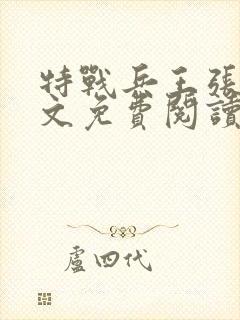 特戰兵王張
文免費閱讀
盧四代